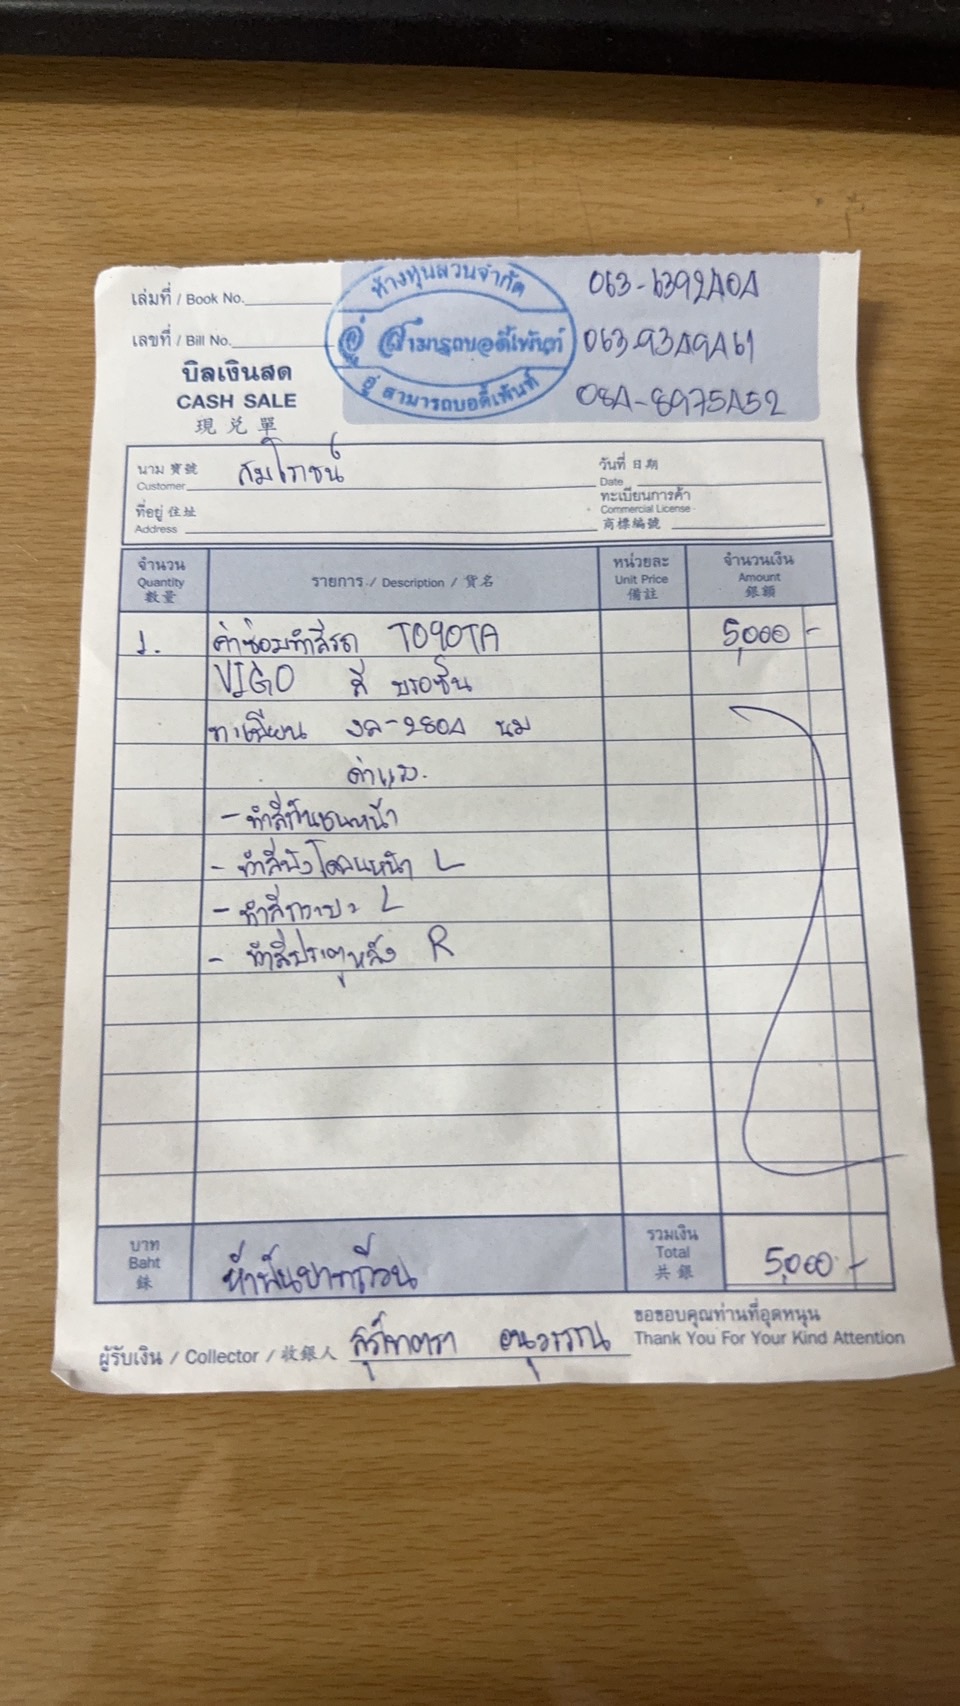 ห้างหุ้นส่วนจำกัด
อู่ สามารถบอดี้เพ้นท์
อู่ สามารถบอดี้เพ้นท์
063-6392404
063-9349461
084-8975452
เล่มที่ / Book No.
เลขที่ / Bill No.
บิลเงินสด
CASH SALE
現兌單
นาม 寶號 Customer สมโภชน์
วันที่ 日期 Date
ที่อยู่ 住址 Address
ทะเบียนการค้า Commercial License 商標編號
จำนวน Quantity 數量 รายการ / Description / 貨名 หน่วยละ Unit Price 備註 จำนวนเงิน Amount 銀額
1. ค่าซ่อมทำสีรถ TOYOTA 5,000 -
VIGO สี บรอซ์น
ทะเบียน 2804 นม
ค่าแรง.
- ทำสีกันชนหน้า
- ทำสีบังโคลนหน้า L
- ทำสีกระบะ L
- ทำสีประตูหลัง R
บาท Baht 銖 ห้าพันบาทถ้วน รวมเงิน Total 共銀 5,000 -
ขอขอบคุณท่านที่อุดหนุน
Thank You For Your Kind Attention
ผู้รับเงิน / Collector / 收銀人